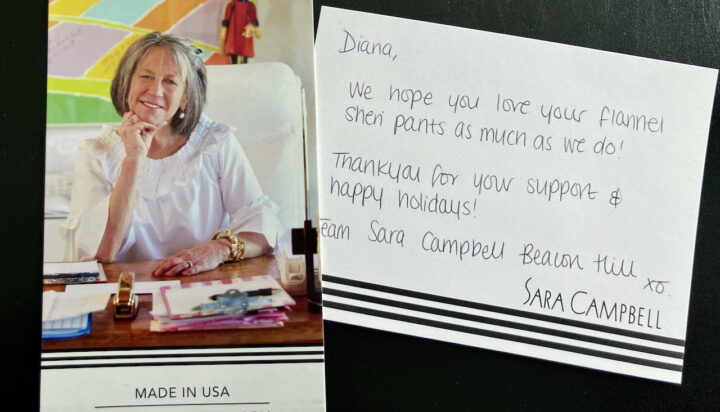 MADE IN USA
Diana,
We hope you love your flannel
sheri pants as much as we do!
Thankyou for your support &
happy holidays!
Team Sara Campbell Beacon Hill
xo
SARA CAMPBELL